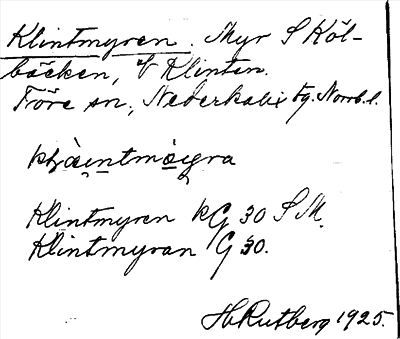 Klintmyren. Myr S Köl-
bäcken, V Klinten.
Töre sn, Nederkalix tg. Norrb. l.
Klintmyren kG 30 S M.
Klintmyran G 30.
H Rutberg 1925.